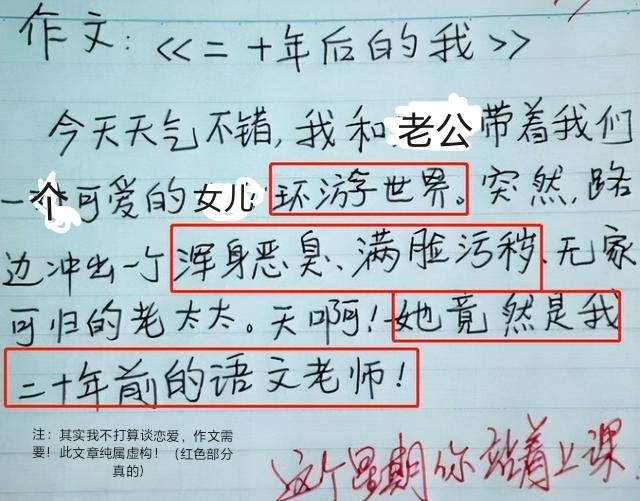 作文:《二十年后的我》
今天天气不错,我和老公带着我们
一个可爱的女儿环游世界。突然,路
边冲出一个浑身恶臭、满脸污秽、无家
可归的老太太。天啊!她竟然是我
二十年前的语文老师!
注:其实我不打算谈恋爱,作文需
要!此文章纯属虚构!(红色部分
真的)
这个星期你站着上课